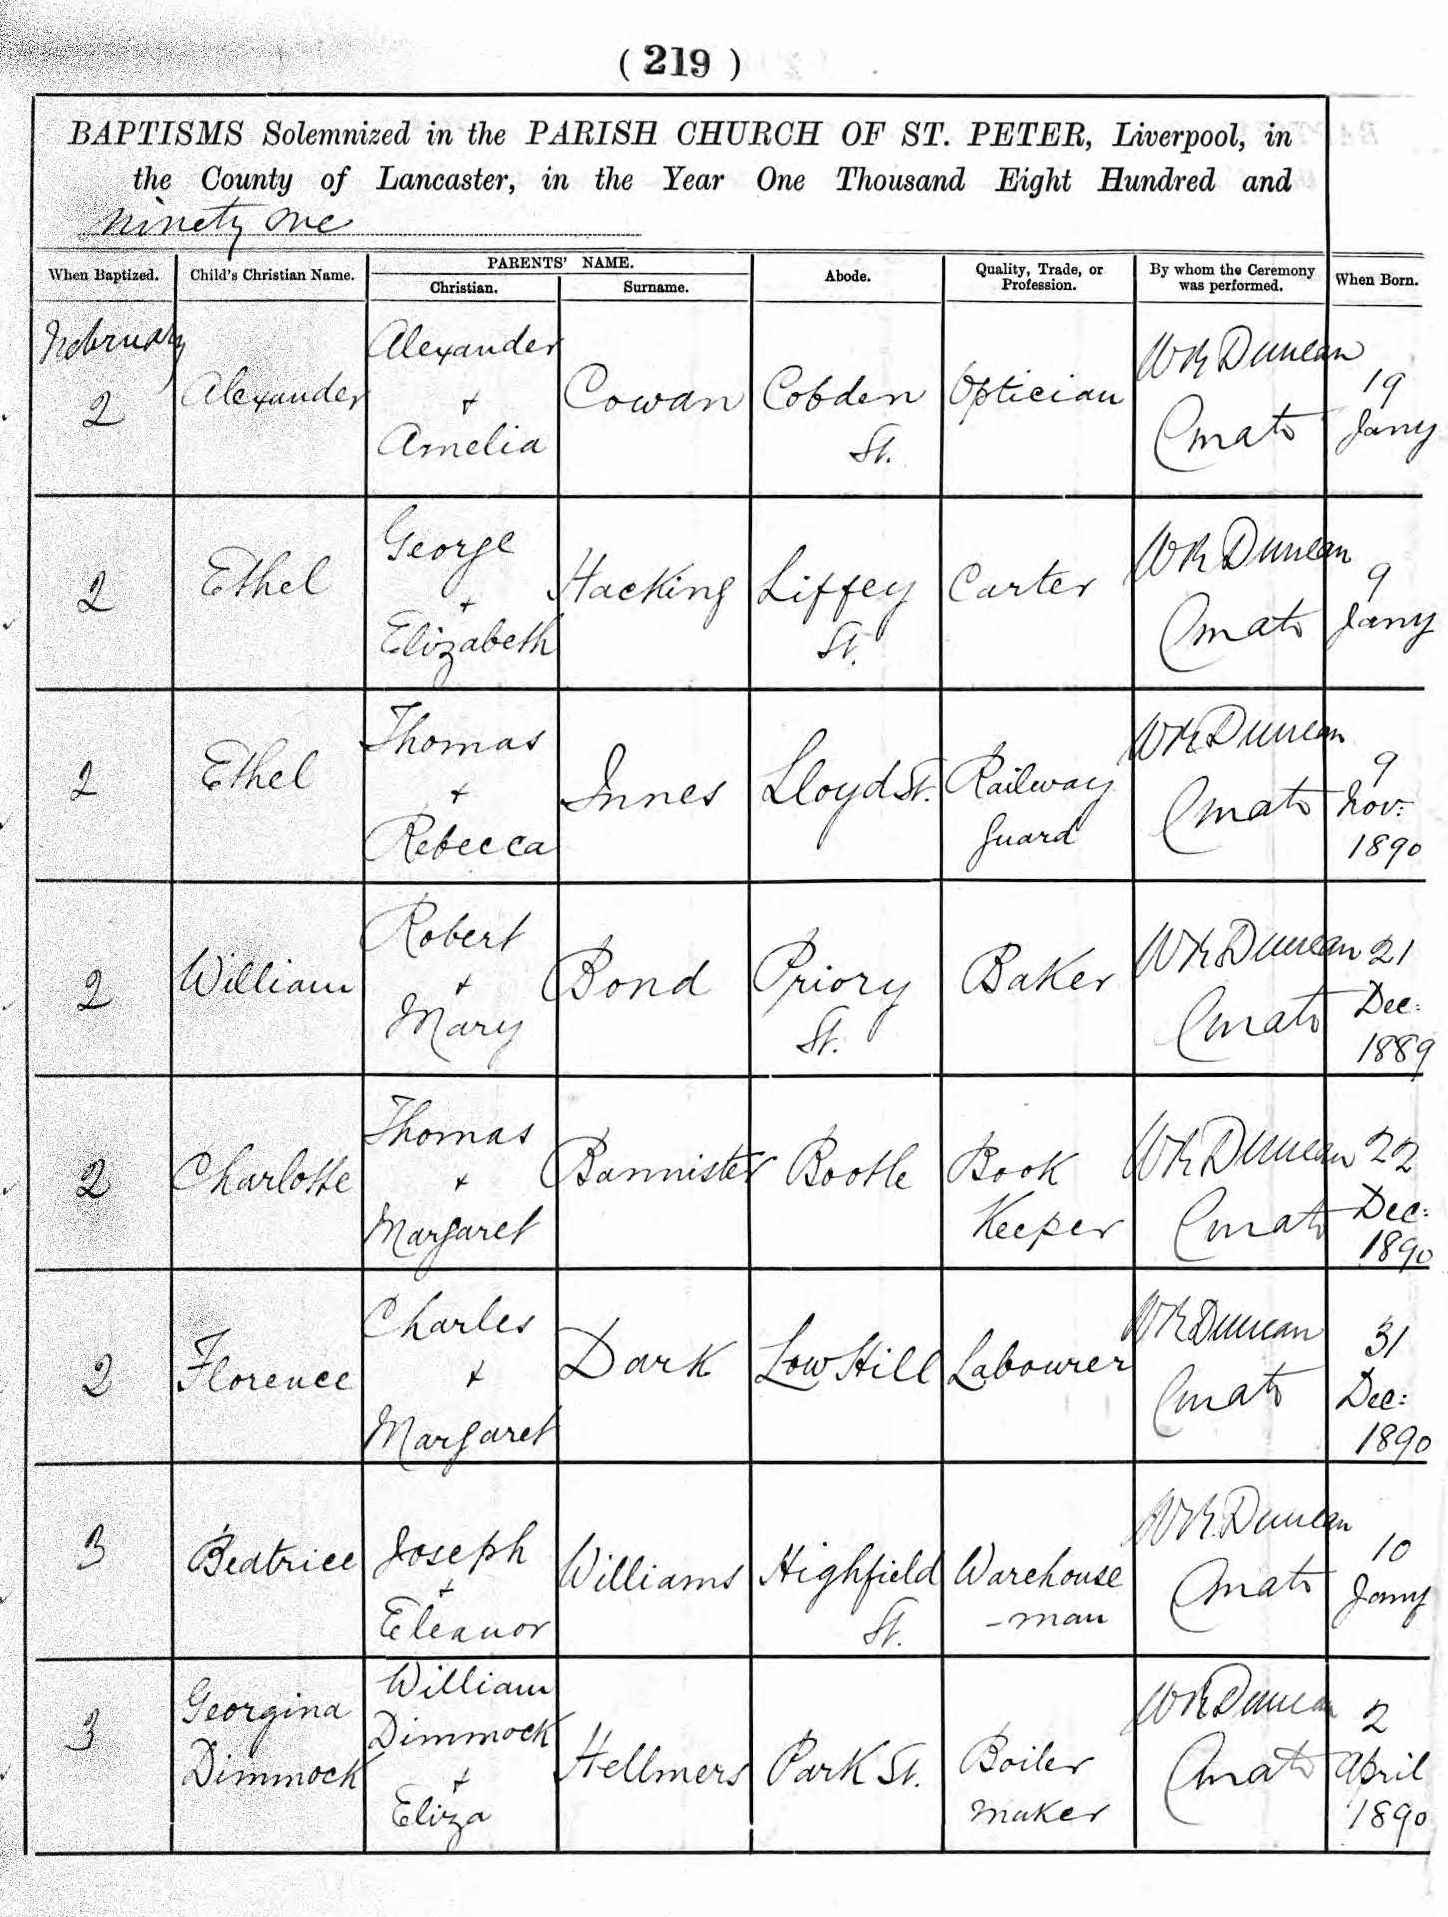 ( 219 )
BAPTISMS Solemnized in the PARISH CHURCH OF ST. PETER, Liverpool, in
the County of Lancaster, in the Year One Thousand Eight Hundred and
ninety one
When Baptized.
Child's Christian Name.
PARENTS' NAME.
Christian.
Surname.
Abode.
Quality, Trade, or
Profession.
By whom the Ceremony
was performed.
When Born.
February
2
Alexander
Alexander
+
Amelia
Cowan
Cobden
St.
Optician
W R Duncan
Curate
19
Jany
2
Ethel
George
+
Elizabeth
Hacking
Liffey
St.
Carter
W R Duncan
Curate
9
Jany
2
Ethel
Thomas
+
Rebecca
Innes
Lloyd St.
Railway
Guard
W R Duncan
Curate
9
Nov:
1890
2
William
Robert
+
Mary
Bond
Priory
St.
Baker
W R Duncan
Curate
21
Dec:
1889
2
Charlotte
Thomas
+
Margaret
Bannister
Bootle
Book
Keeper
W R Duncan
Curate
22
Dec:
1890
2
Florence
Charles
+
Margaret
Dark
Low Hill
Labourer
W R Duncan
Curate
31
Dec:
1890
3
Beatrice
Joseph
+
Eleanor
Williams
Highfield
St.
Warehouse
-man
W R Duncan
Curate
10
Jany
3
Georgina
Dimmock
William
Dimmock
+
Eliza
Hellmers
Park St.
Boiler
maker
W R Duncan
Curate
2
April
1890